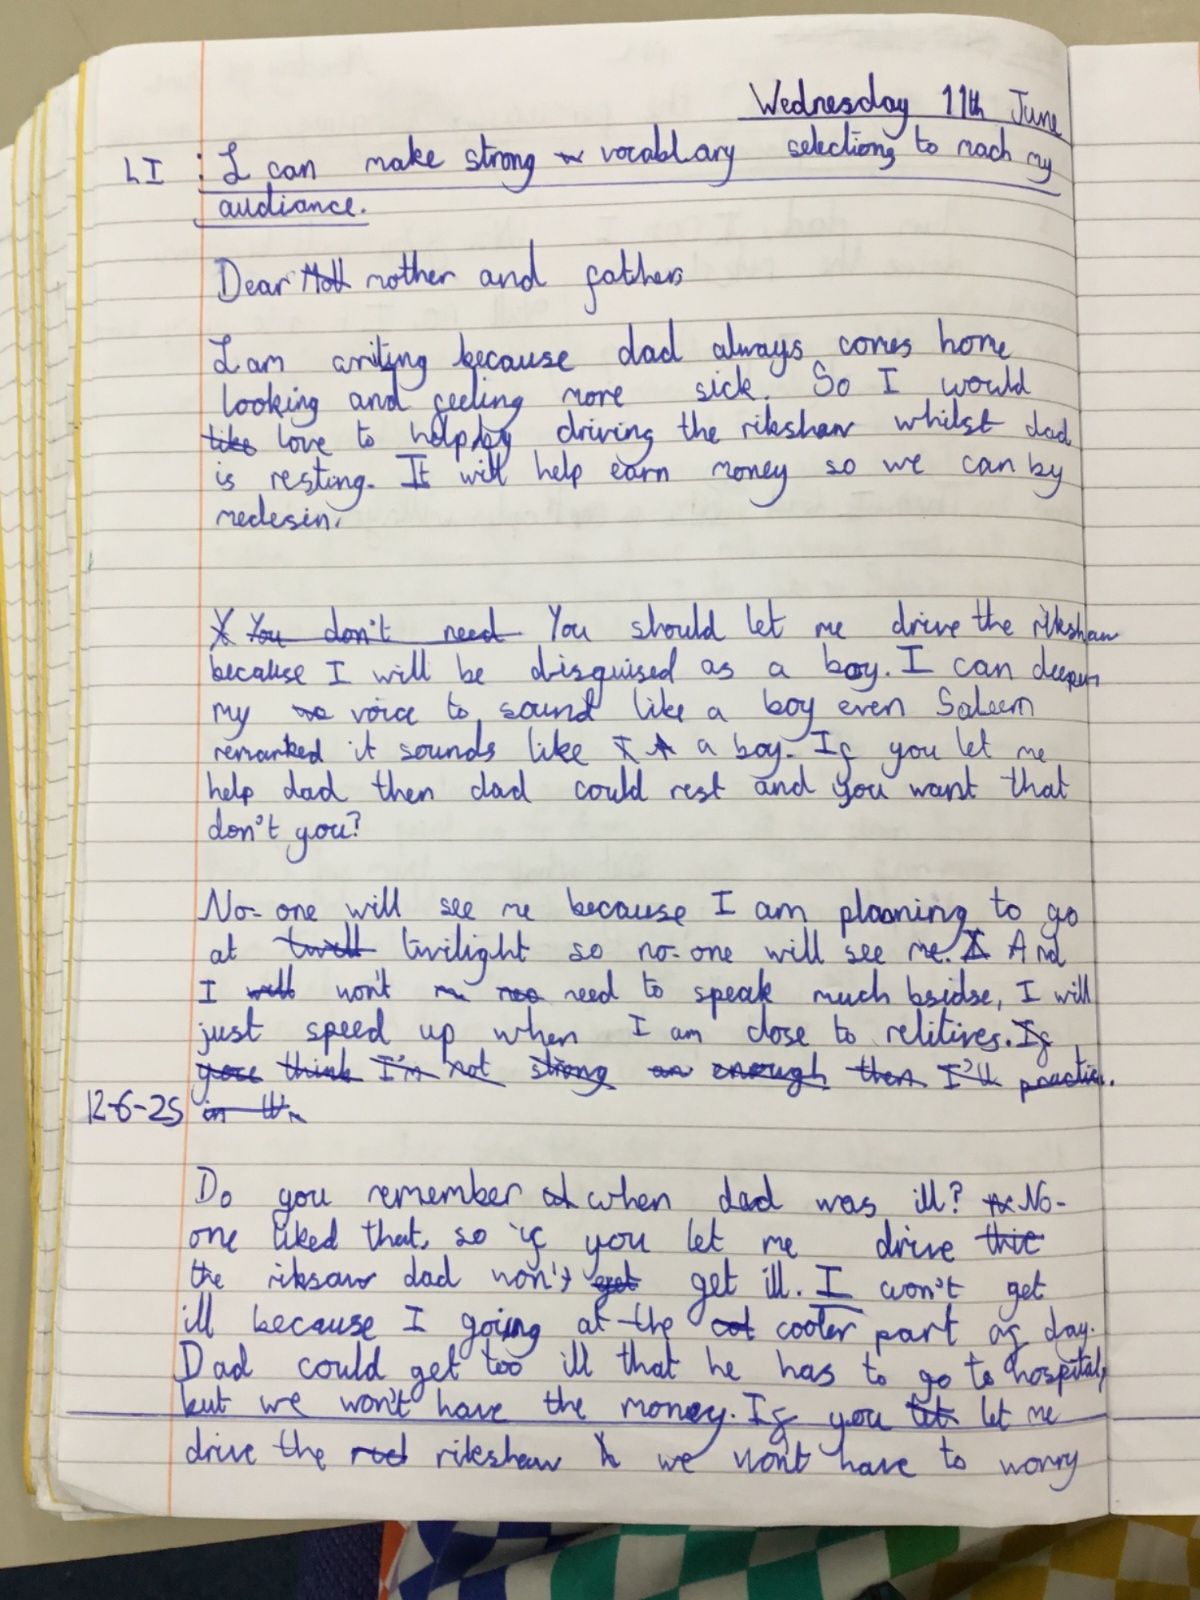 Wednesday 11th June
LI : I can make strong vocablary selections to mach my
audiance.
Dear mother and father
I am writing because dad always comes home
looking and feeling more sick. So I would
like love to help by driving the rikshaw whilst dad
is resting. It will help earn money so we can by
medesin.
You don't need You should let me drive the rikshaw
because I will be disguised as a boy. I can deepen
my voice to sound like a boy even Saleem
remarked it sounds like I A a boy. If you let me
help dad then dad could rest and you want that
don't you?
No-one will see me because I am planning to go
at twell twilight so no-one will see me. I And
I will won't need to speak much bsidse, I will
just speed up when I am close to relitives. If
you think I'm not strong enough then I'll practice
12-6-25 in
Do you remember when dad was ill? No-
one liked that, so if you let me drive
the riksaw dad won't get get ill. I won't get
ill because I going at the cooler part of day.
Dad could get too ill that he has to go to hospital,
but we won't have the money. If you let me
drive the rikshaw we won't have to worry